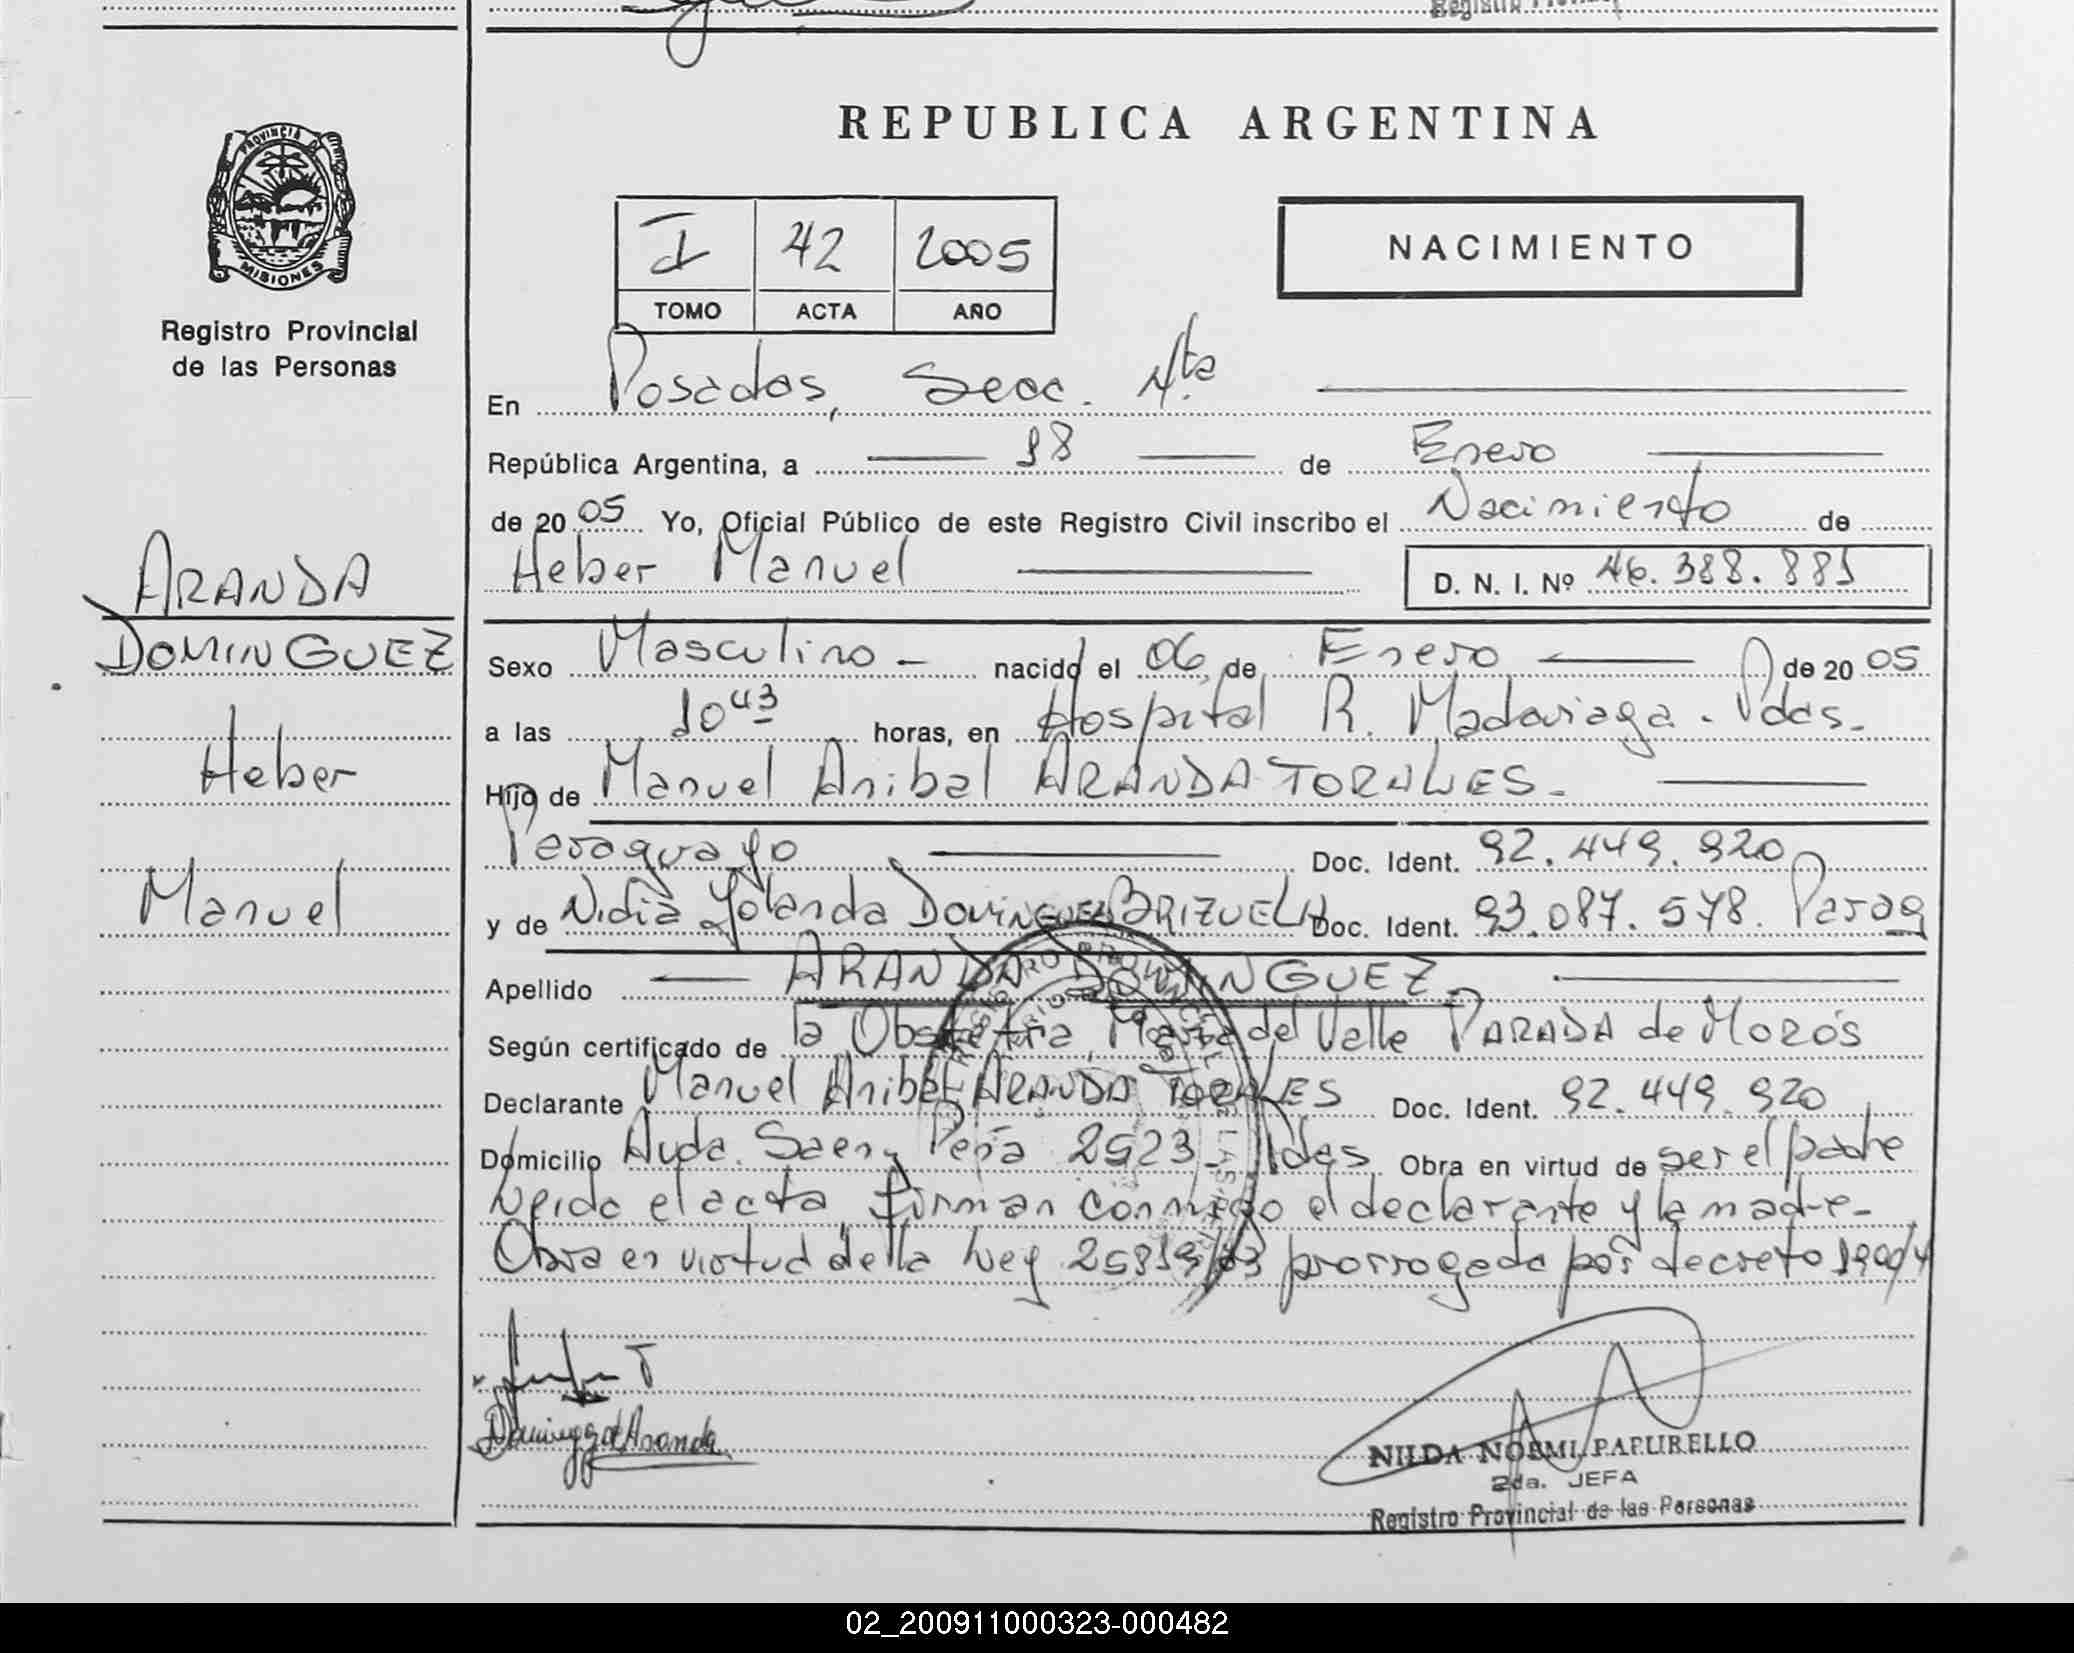 REPUBLICA ARGENTINA
PROVINCIA DE
MISIONES
Registro Provincial
de las Personas
I 42 2005
TOMO ACTA AÑO
NACIMIENTO
En Posadas, Secc. 4ta.
República Argentina, a 18 de Enero
de 2005 Yo, Oficial Público de este Registro Civil inscribo el Nacimiento de
Heber Manuel D. N. I. Nº 46.388.881
ARANDA
DOMINGUEZ
Heber
Manuel
Sexo Masculino nacido el 06 de Enero de 2005
a las 10 43 horas, en Hospital R. Madariaga. Pdas.
Hijo de Manuel Anibal ARANDA TORALES.
Paraguayo Doc. Ident. 92.449.920
y de Nidia Yolanda DOMINGUEZ BRIZUELA Doc. Ident. 93.087.578. Parag
Apellido ARANDA DOMINGUEZ.
Según certificado de la Obstetra, Maria del Valle PARADA de MOROS
Declarante Manuel Anibal ARANDA TORALES Doc. Ident. 92.449.920
Domicilio Avda. Saenz Peña 2923, Pdas, Obra en virtud de ser el padre
Leida el acta, firman conmigo el declarante y la madre-
Obra en virtud de la Ley 25819/03 prorrogada por decreto
Dominguez de Aranda
NILDA NOEMI PAPURELLO
2da. JEFA
Registro Provincial de las Personas
02_200911000323-000482